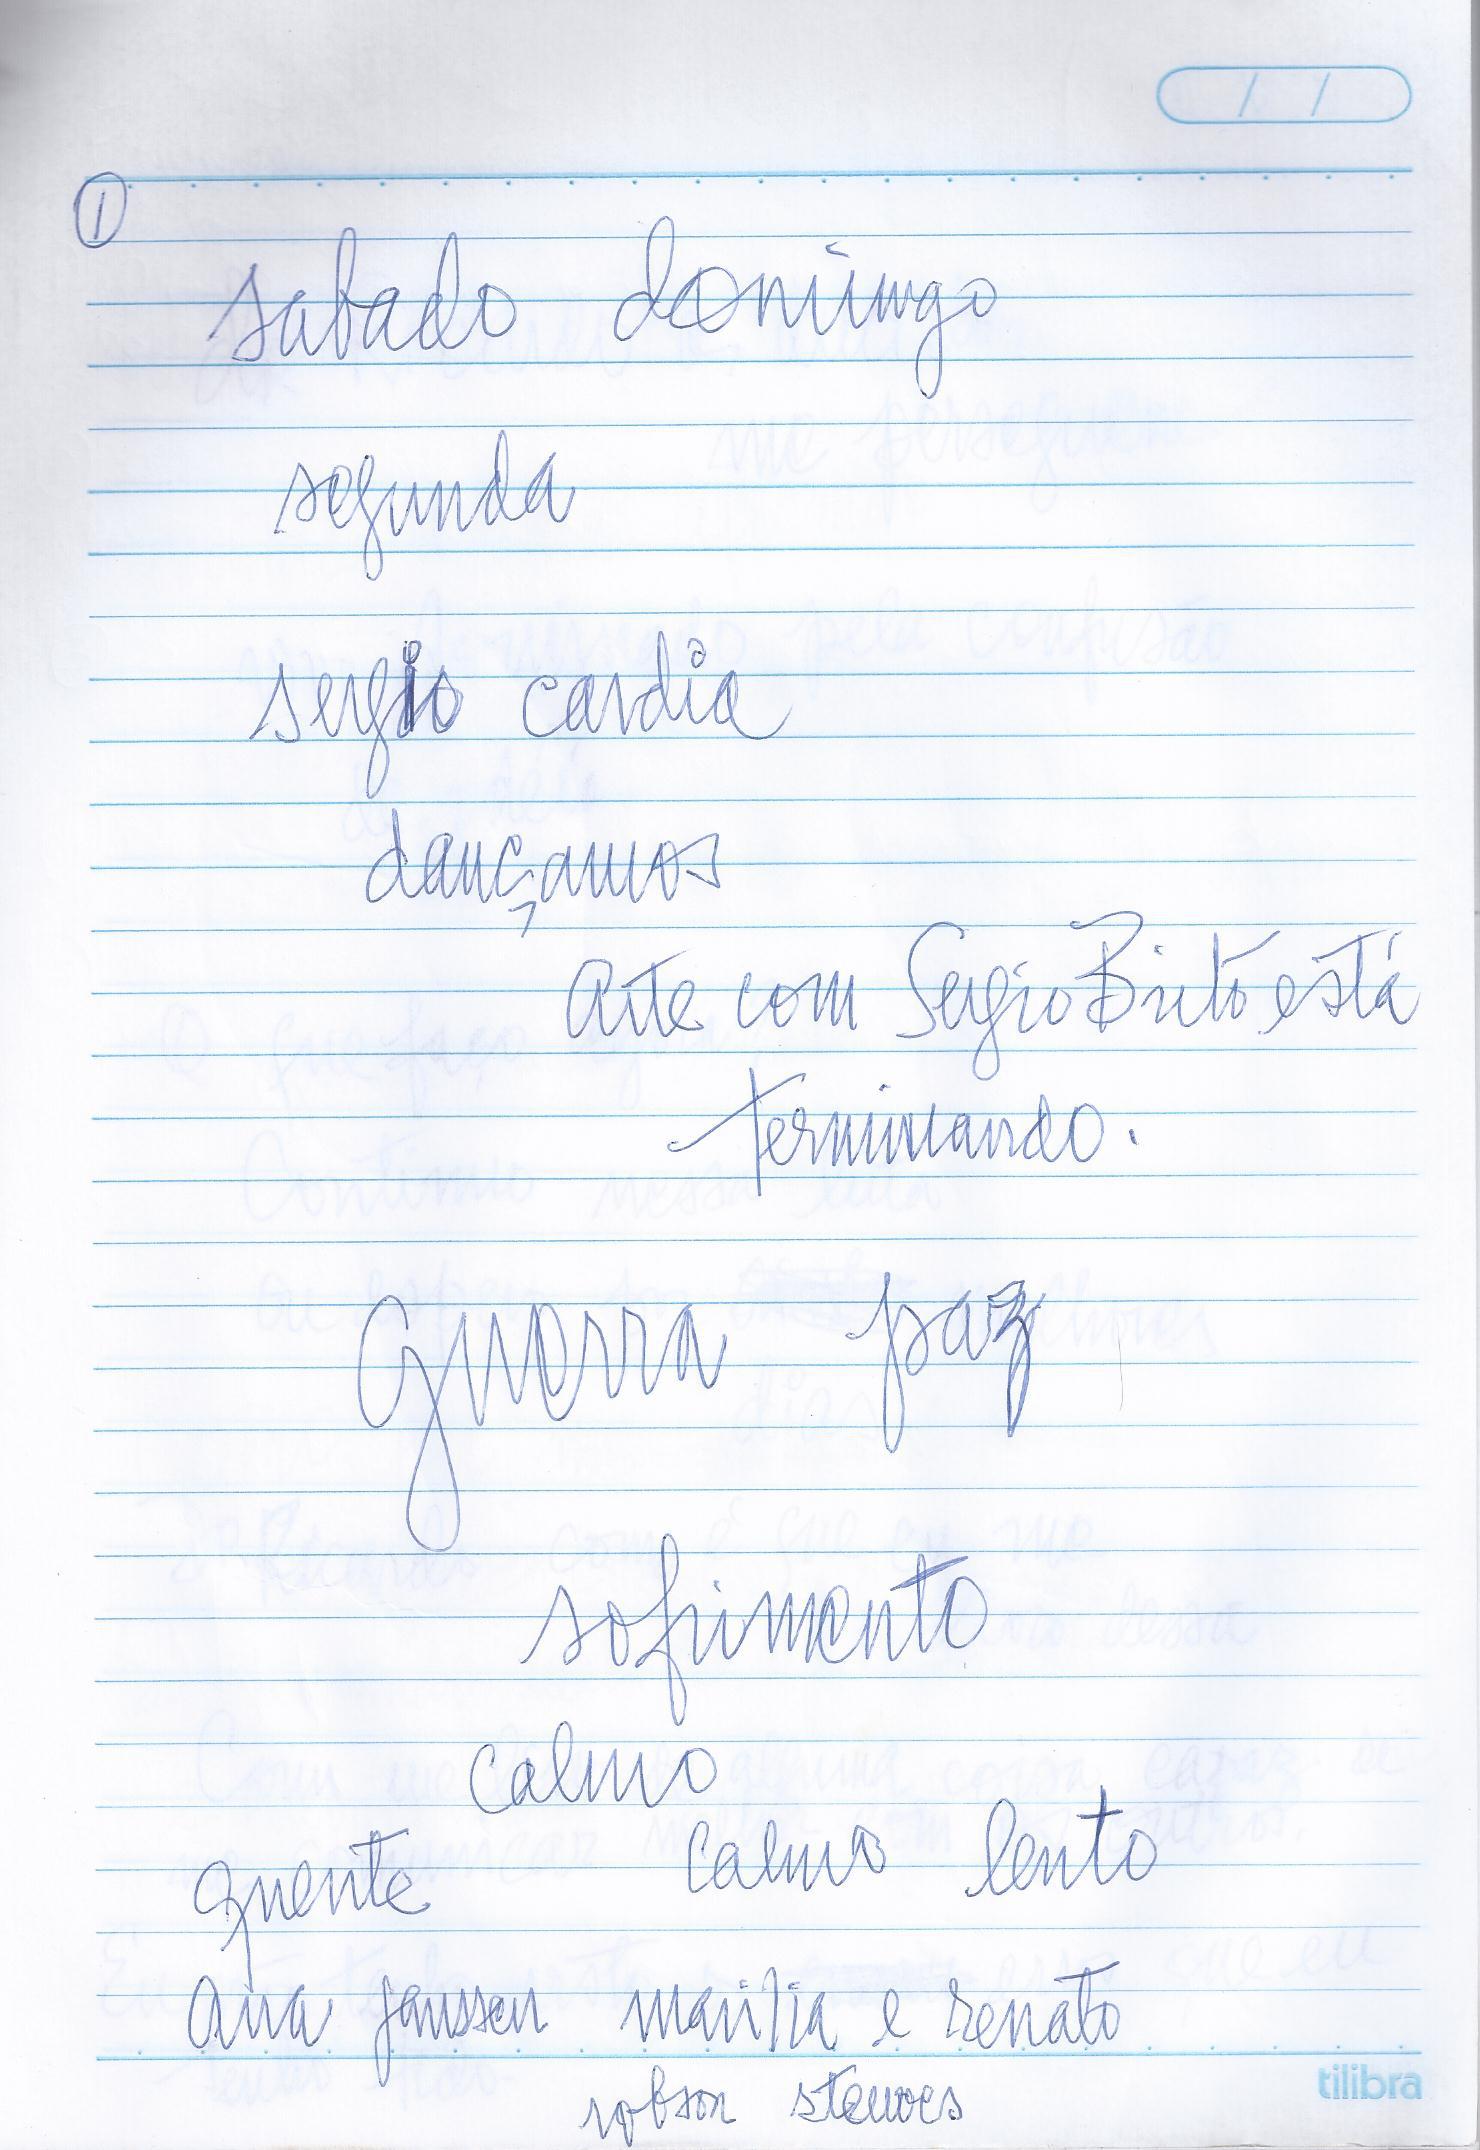 1
sabado domingo
segunda
sergio cardia
dançamos
Arte com Sergio Brito está
terminando.
guerra paz
sofrimento
calmo
quente calmo lento
Ana janssen marilia e renato
robson
tilibra